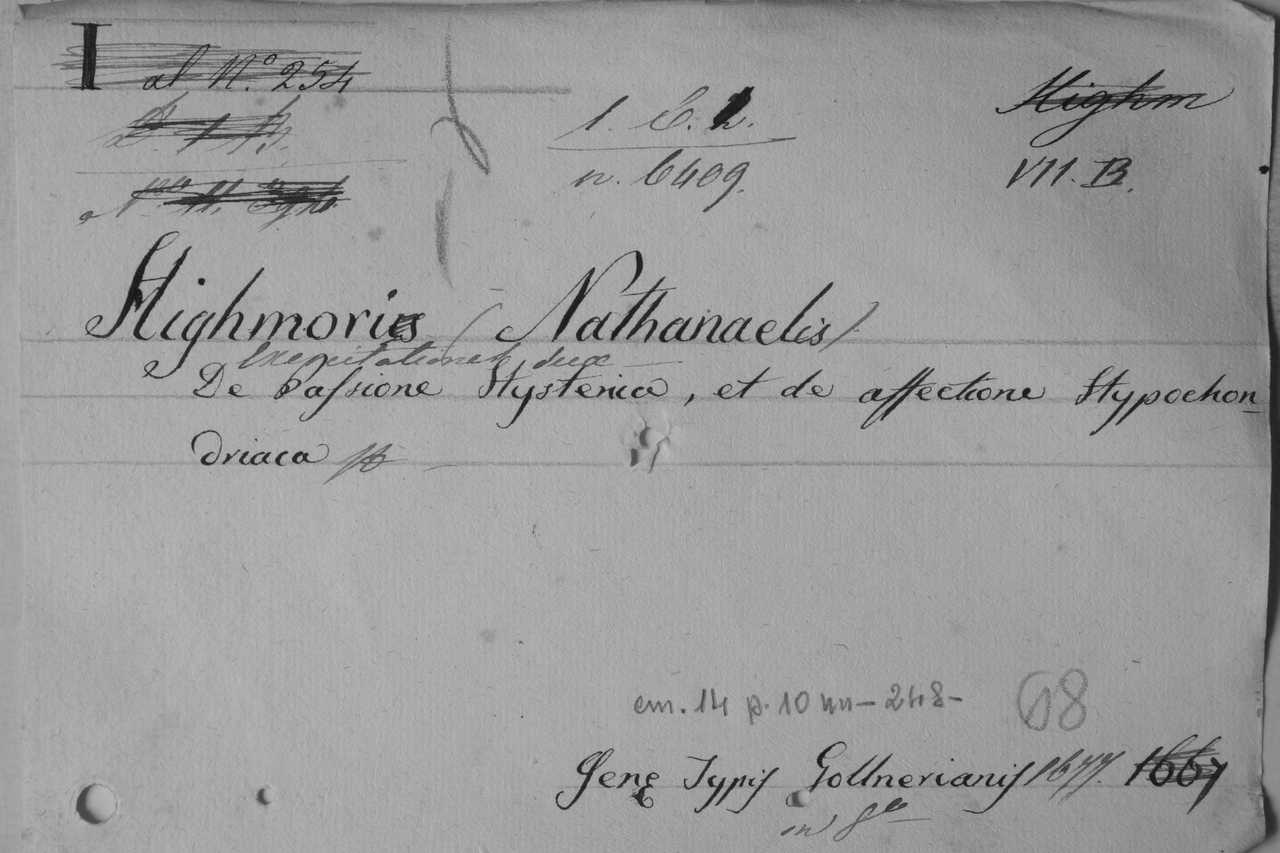 I al N.º 254
1. C. 2.
n. 6409.
Highm
VII. B.
Highmoris (Nathanaelis)
Exercitationes duæ
De Passione Hysterica, et de affectione Hypochon-
driaca
cm. 14 p. 10 nn - 248 -
68
Jenę Typis Gollnerianis 1677. 1667
in 8vo